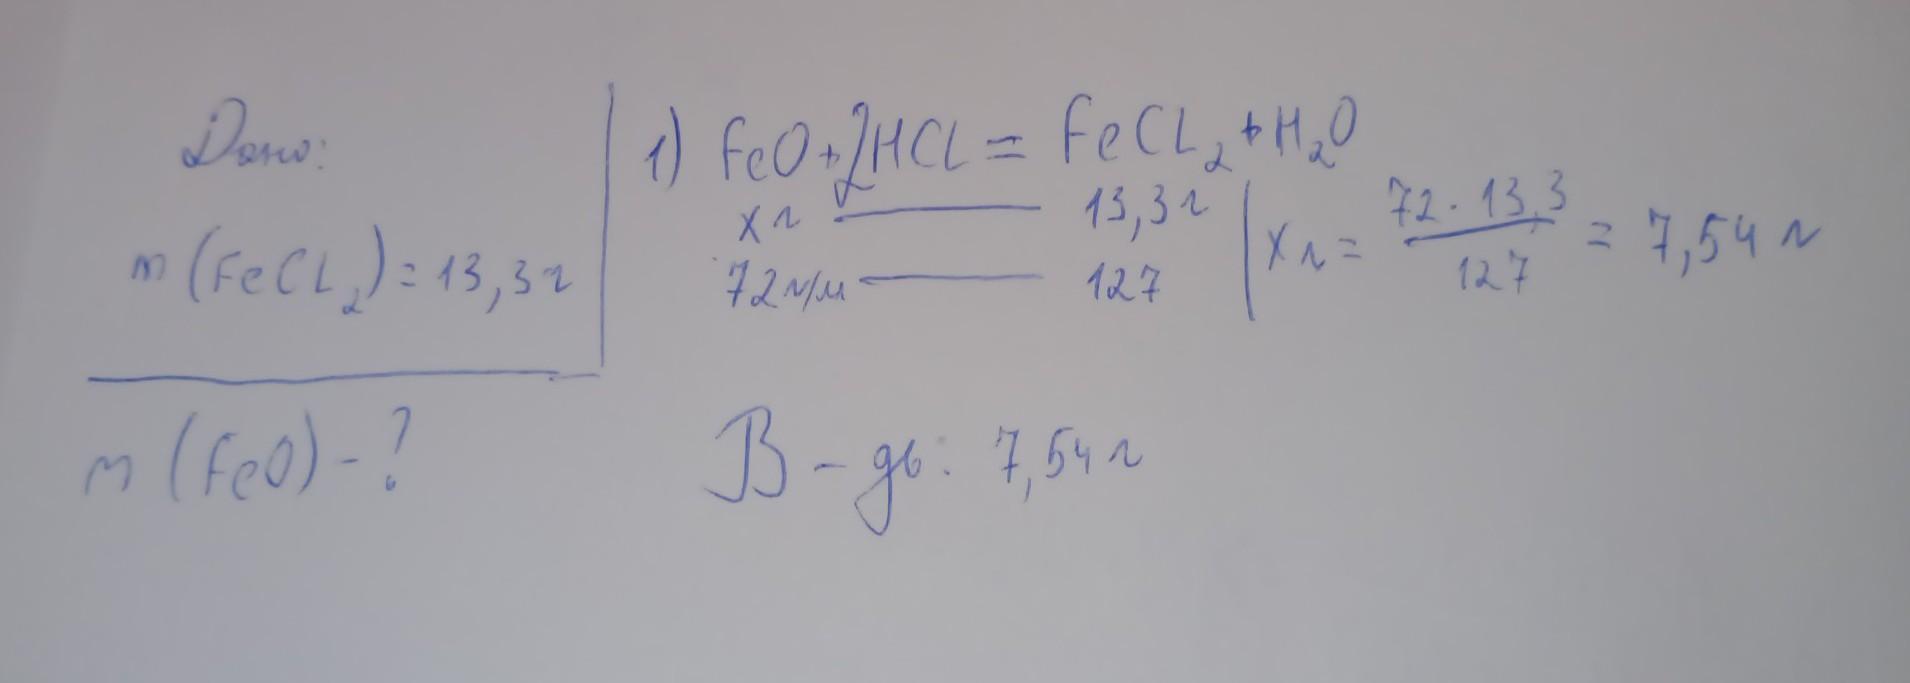 Дано:
m(FeCL₂)=13,3г
m(FeO)-?
1) FeO+2HCL = FeCL₂+H₂O
xг — 13,3г
72г/м — 127
xг = 72·13,3/127 = 7,54 г
В-дь: 7,54 г